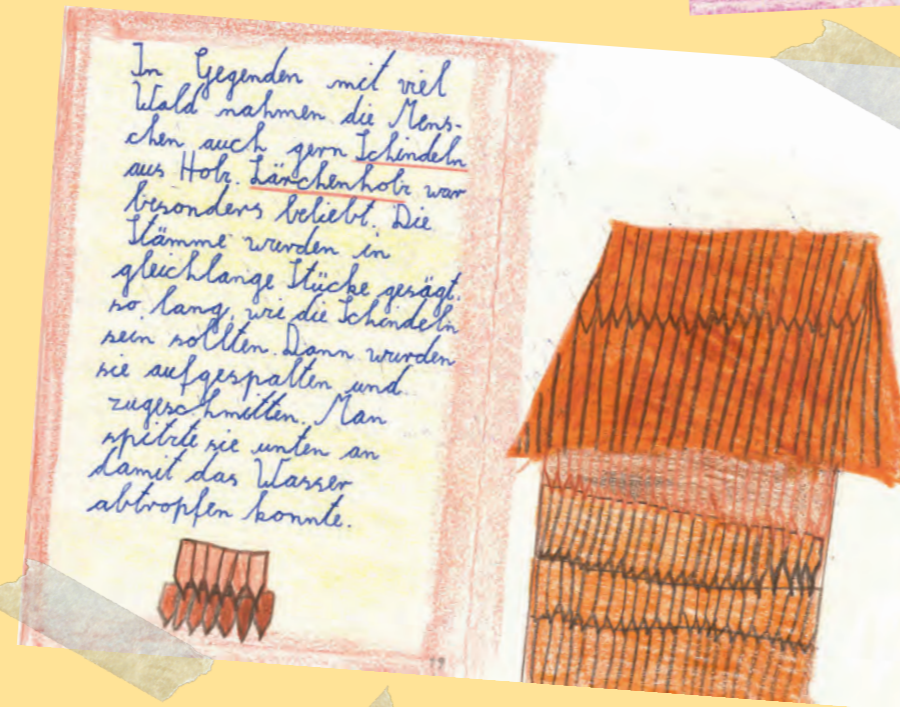 In Gegenden mit viel
Wald nahmen die Mens-
chen auch gern Schindeln
aus Holz. Lärchenholz war
besonders beliebt. Die
Stämme wurden in
gleichlange Stücke gesägt.
so lang, wie die Schindeln
sein sollten. Dann wurden
sie aufgespalten und
zugeschnitten. Man
spitzte sie unten an
damit das Wasser
abtropfen konnte.